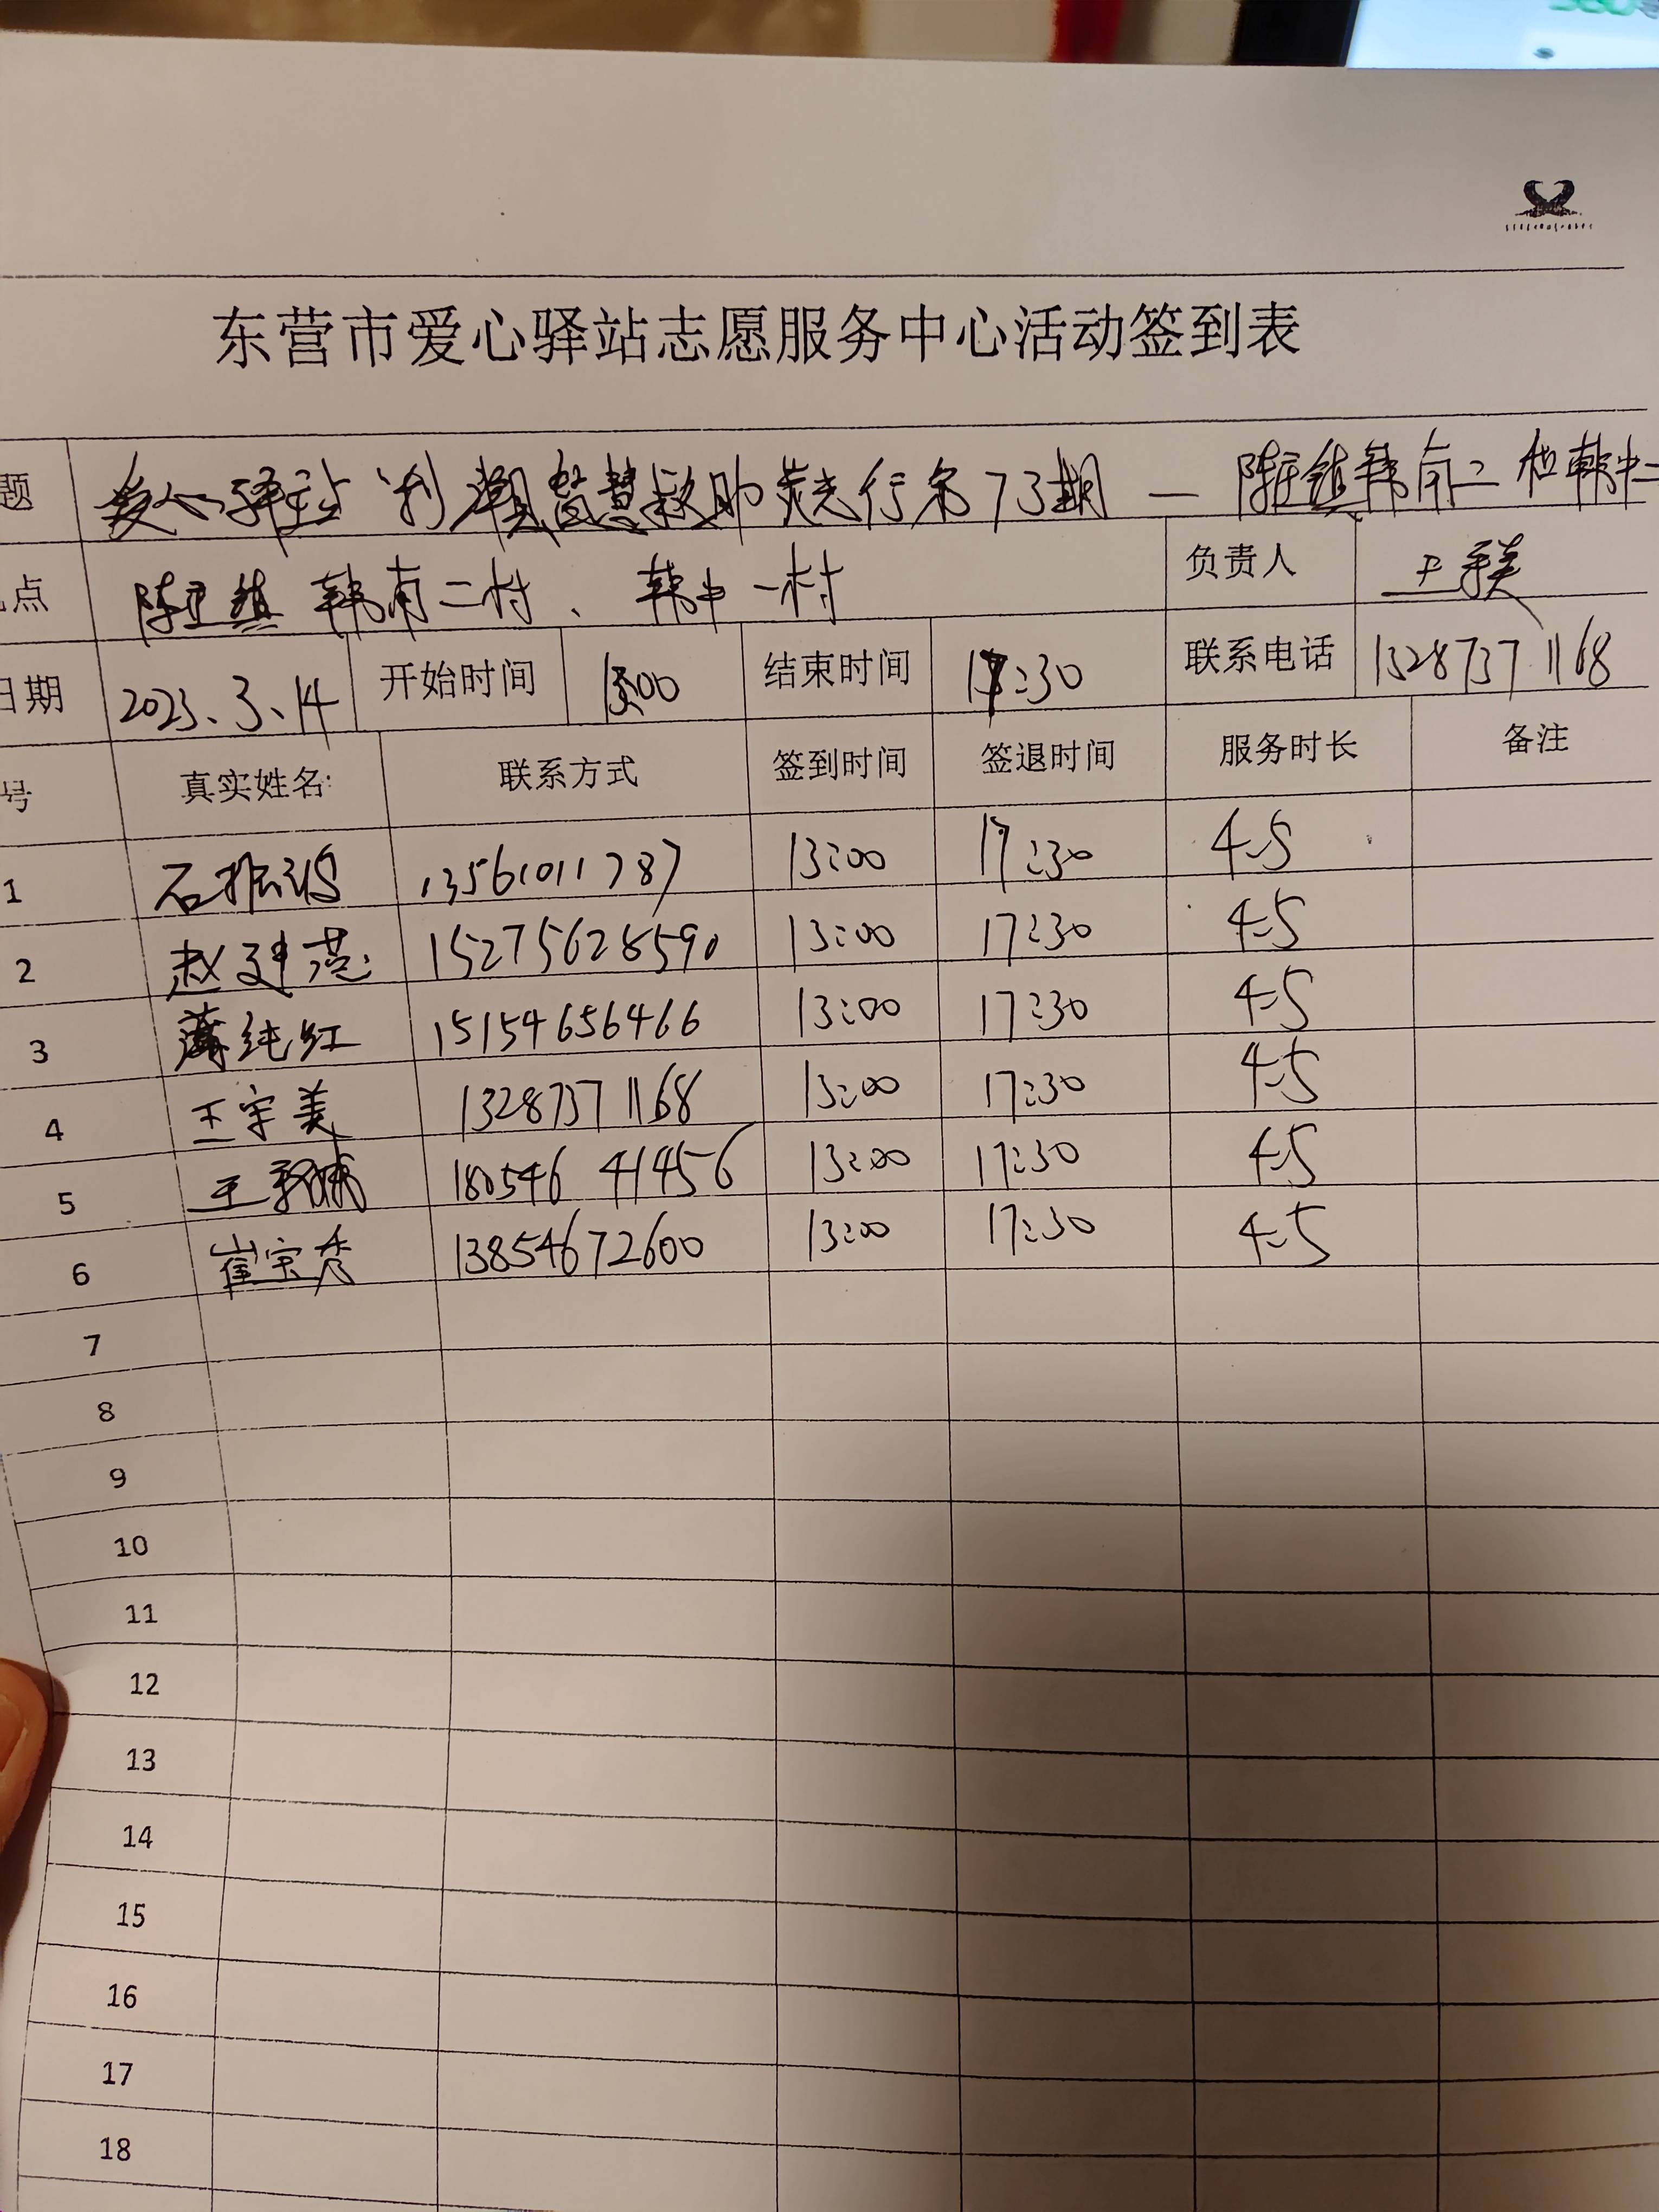 东营市爱心驿站志愿服务中心活动签到表
题 爱心驿站"利潮智慧救助荧光行第73期 — 陈庄镇韩南二村韩中一
点 陈庄镇韩南二村、韩中一村 负责人 王
日期 2023.3.14 开始时间 13:00 结束时间 17:30 联系电话 13287371168
号 真实姓名: 联系方式 签到时间 签退时间 服务时长 备注
1 石振 13561011787 13:00 17:30 4.5
2 赵建燕 15275628590 13:00 17:30 4.5
3 薄纯红 15154656466 13:00 17:30 4.5
4 王宇美 13287371168 13:00 17:30 4.5
5 王 18054641456 13:00 17:30 4.5
6 崔宝秀 13854672600 13:00 17:30 4.5
7
8
9
10
11
12
13
14
15
16
17
18